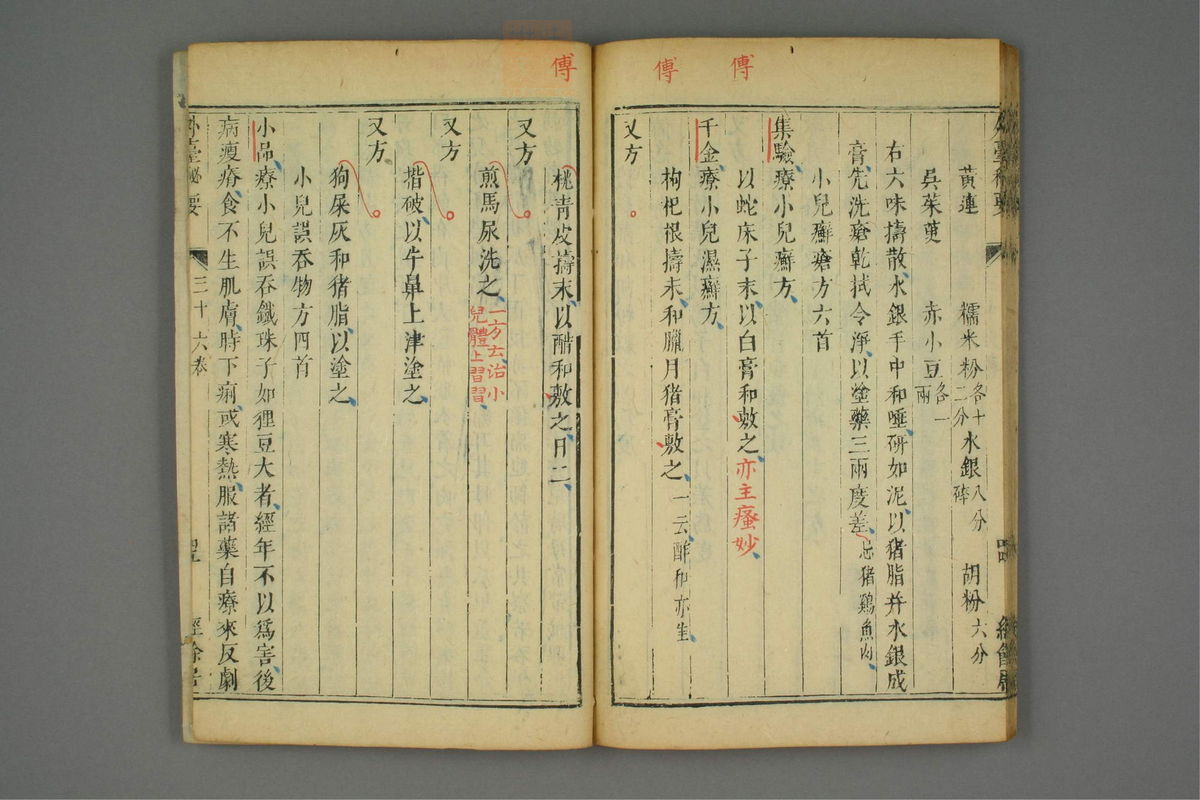 傅
傅
黃連　糯米粉各十二分　水銀八分碎　胡粉六分
吳茱萸　赤小豆各一兩
右六味擣散水銀手中和唾研如泥以猪脂并水銀成
膏先洗瘡乾拭令淨以塗藥三兩度差忌猪鷄魚肉
小兒癬瘡方六首
集驗療小兒癬方
以蛇床子末以白膏和敷之亦主瘙妙
千金療小兒濕癬方
枸杞根擣末和臘月猪膏敷之一云酢和亦佳
又方
傅
桃青皮擣末以醋和敷之日二
又方
煎馬尿洗之一方云治小兒體上習習
又方
揩破以牛鼻上津塗之
又方
狗屎灰和猪脂以塗之
小兒誤吞物方四首
小品療小兒誤吞鐵珠子如狸豆大者經年不以爲害後
病瘦瘠食不生肌膚時下痢或寒熱服諸藥自療來反劇
外臺秘要　三十六卷　經餘居